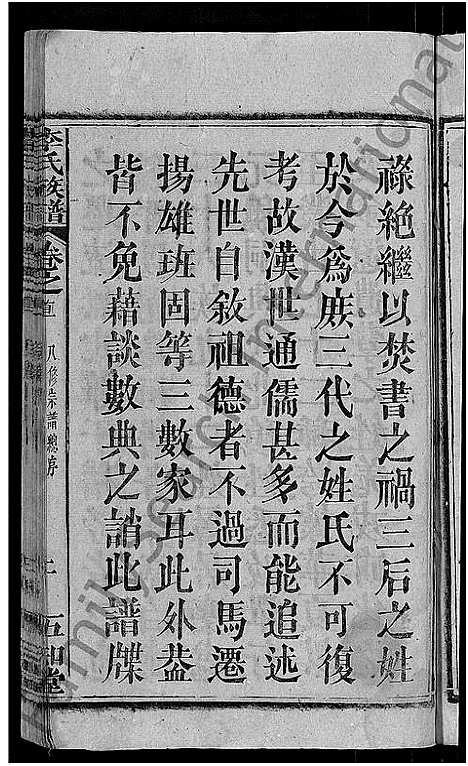 祿絶繼以焚書之禍三后之姓
於今爲庶三代之姓氏不可復
考故漢世通儒甚多而能追述
先世自敘祖德者不過司馬遷
揚雄班固等三數家耳此外葢
皆不免藉談數典之誚此譜牒
李氏族譜 卷之首 八修宗譜總序 二 五知堂